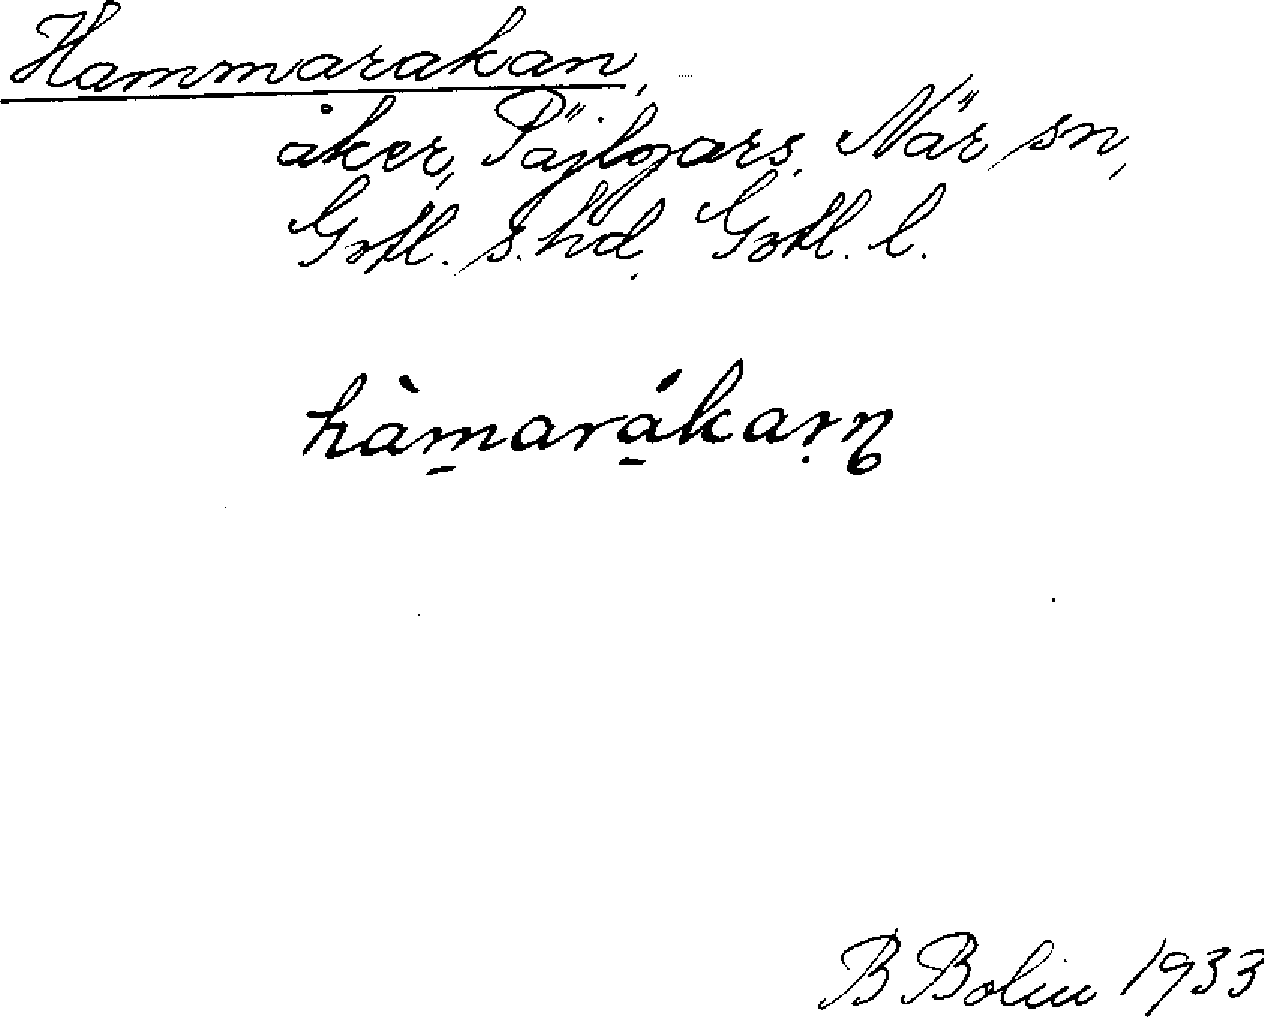 Hammarakan,
åker, Päjlgars, När sn,
Gotl. s. hd. Gotl. l.
hàmarákaɳ
B Bolin 1933